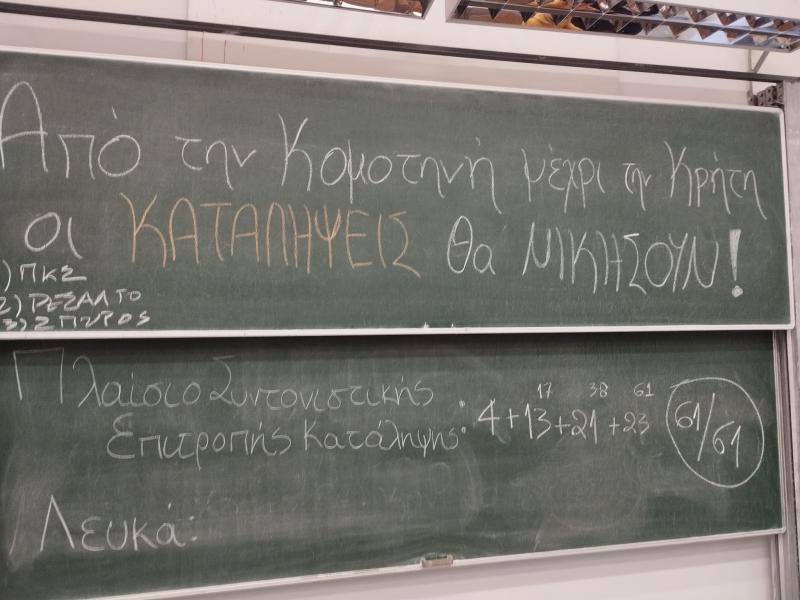 Από την Κομοτηνή μέχρι την Κρήτη
οι ΚΑΤΑΛΗΨΕΙΣ θα ΝΙΚΗΣΟΥΝ!
1) ΠΚΣ
2) ΡΕΣΑΛΤΟ
3) ΣΠΥΡΟΣ
Πλαίσιο Συντονιστικής
Επιτροπής Κατάληψης:
17 38 61
4+13+21+23
61/61
Λευκά: